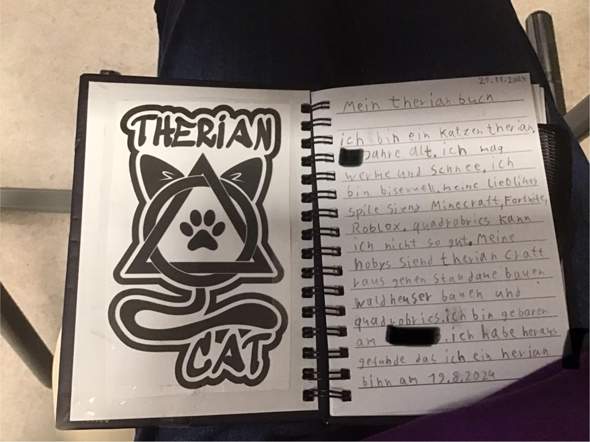 THERIAN
CAT
21.11.2024
Mein therian buch
ich bin ein katzen therian
Jahre alt. ich mag
werme und Schnee. ich
bin bisexuell. meine lieblings
spile siend Minecraft, Fortnite,
Roblox. quadrobrics kann
ich nicht so gut. Meine
hobys siend therian craft
raus gehen bauen
waldheuser bauen und
quadrobrics. ich bin gebaren
am . ich habe heraus
gefunde das ich ein herian
binn am 19.8.2024